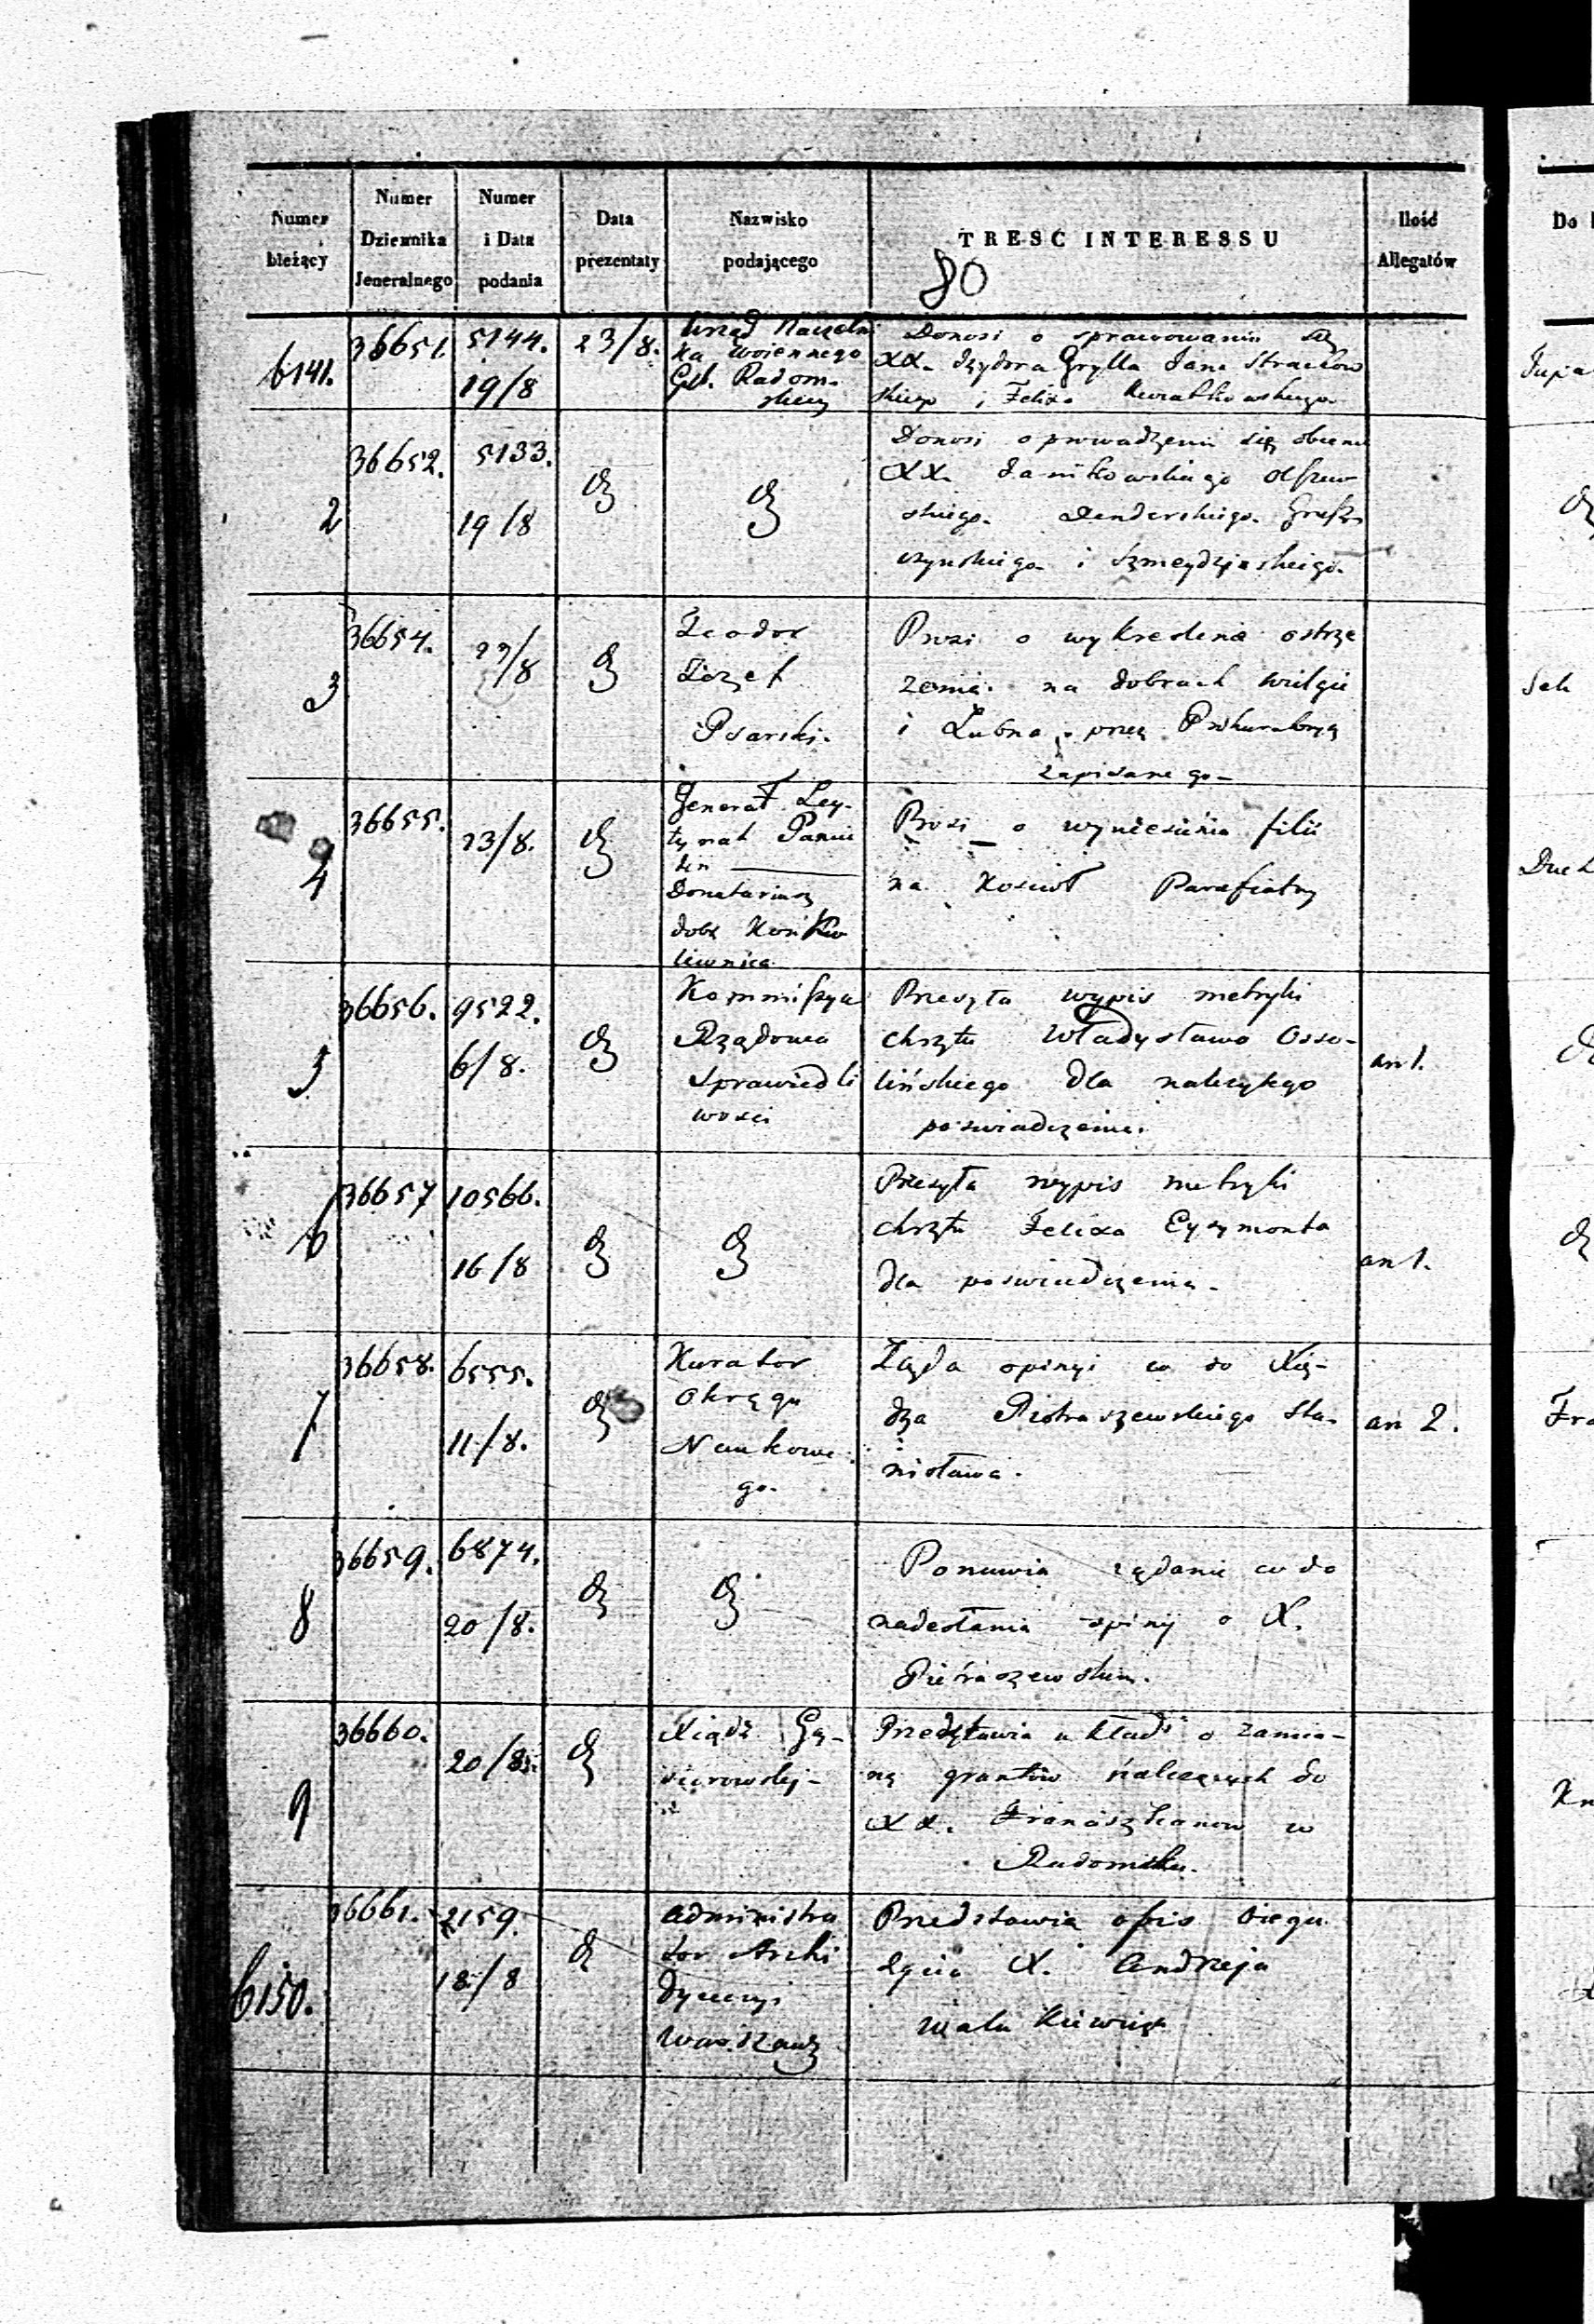 Numer bieżący
Numer Dziennika Jeneralnego
Numer i Data podania
Data prezentaty
Nazwisko podającego
TREŚĆ INTERESSU
Ilość Allegatów
80
6141.
36651.
5144.
19/8
23/8.
Urząd Naczelni
ka Woiennego
Gub. Radom-
skiey
Donosi o sprawowaniu się
XX. Izydora Grylla Jana Strachow
skiego i Felixa Kwiatkowskiego.
2
36652.
5133.
19/8
Donosi o prowadzeniu się obecne
XX. Janikowskiego Olszew
skiego. Denderskiego.
i
3
36654.
22/8
Teodor
Józef
Psarski.
Prosi o wykreślenie ostrze
żenia. na dobrach Wilgie
i Lubna, przez Prokuratoryą
zapisanego-
4
36655.
23/8.
Jenerał Ley-
tynant Paniu
tin
Donataryusz
dobr
Prosi o wyniesienie filii
na Kosciół Parafialny
5
36656.
9522.
6/8.
Kommissya
Rządowa
Sprawiedli
wosci
Przesyła wypis metryki
chrztu Władysława Osso-
lińskiego dla należytego
poswiadczenia.
an 1.
6
36657
10566.
16/8
Przesyła wypis metryki
chrztu Felixa Eysymonta
dla poswiadczenia.
an 1.
7
36658.
6555.
11/8.
Kurator
Okręgu
Naukowe
go.
Żąda opinyi co do Xię-
dza Pietraszewskiego Sta-
nisława.
an 2.
8
36659.
6874.
20/8.
Ponawia żądanie co do
nadesłania opinij o X.
Pietraszewskim.
9
36660.
20/8.
Xiądz Gą-
siorowski-
Przedstawia układ o zamia-
nę gruntów należących do
XX. Franciszkanow w
Radomsku.
6150.
36661.
2159.
18/8
Administra
tor Archi
Dyecezyi
Warszaws
Przedstawia opis biegu
życia X. Andrzeja
Do
Duch